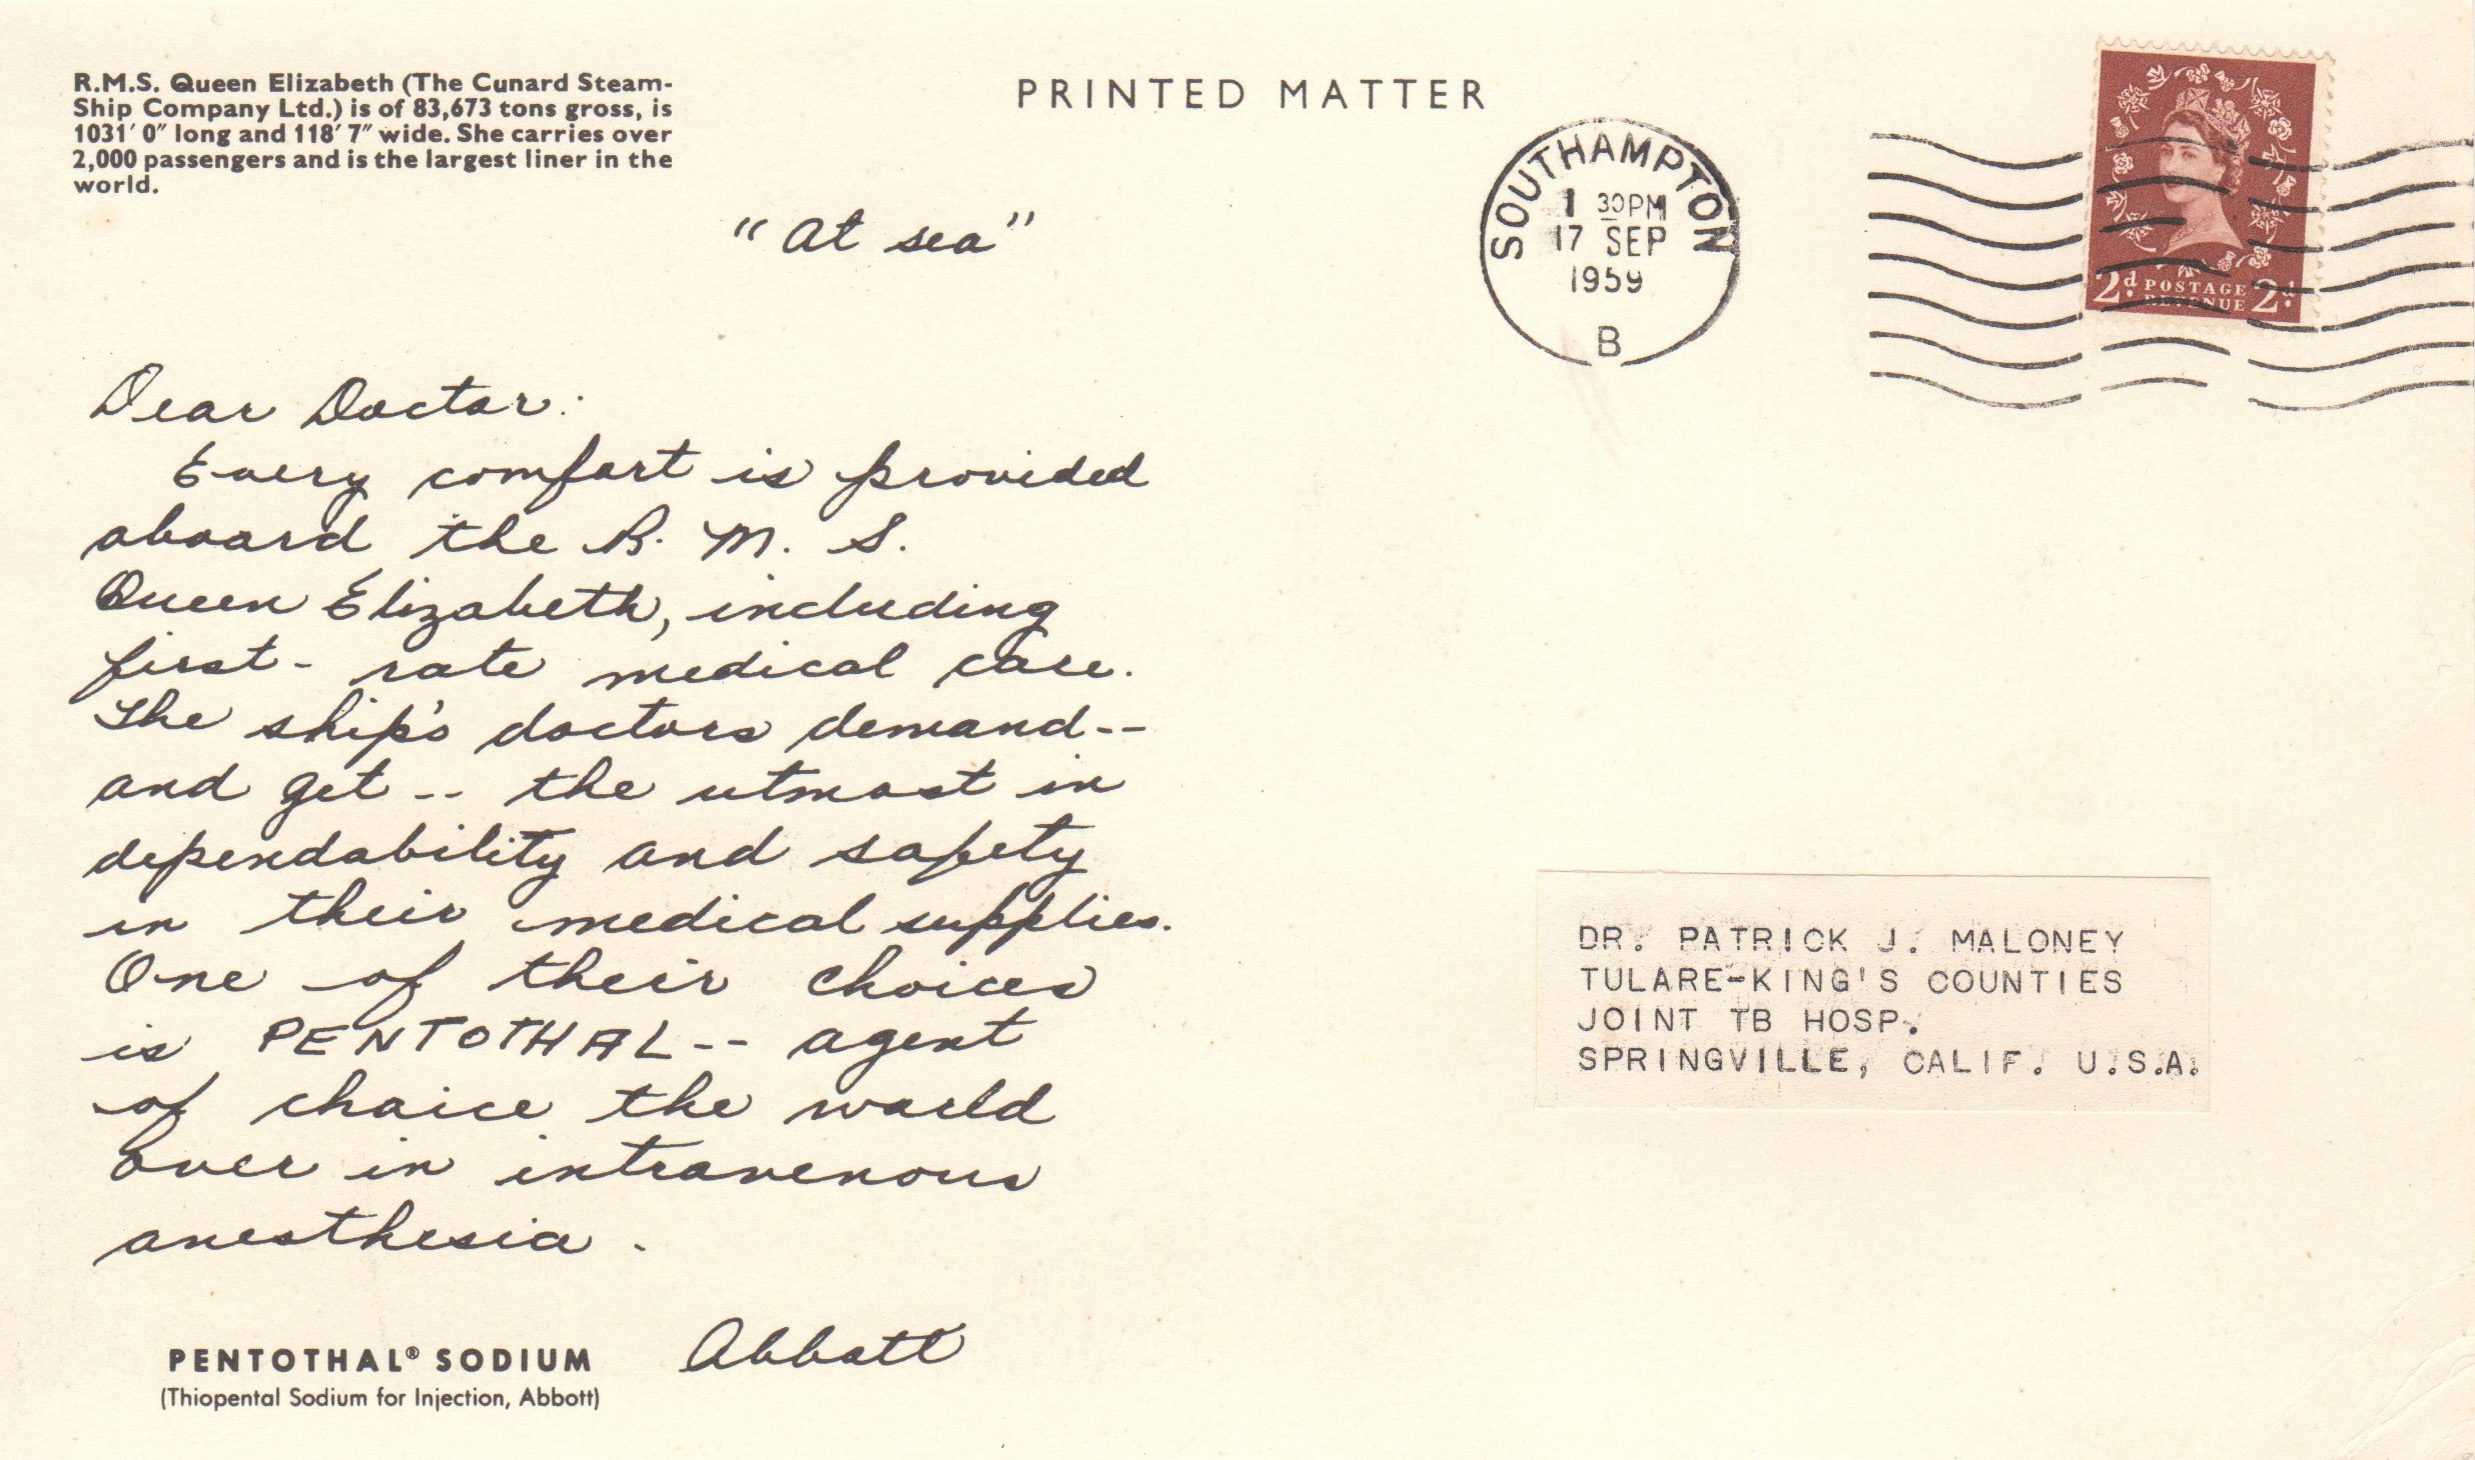 R.M.S. Queen Elizabeth (The Cunard Steam-
Ship Company Ltd.) is of 83,673 tons gross, is
1031′ 0″ long and 118′ 7″ wide. She carries over
2,000 passengers and is the largest liner in the
world.
PRINTED MATTER
SOUTHAMPTON
1 30PM
17 SEP
1959
B
2d. POSTAGE 2d.
REVENUE
"At sea"
Dear Doctor:
Every comfort is provided
aboard the R. M. S.
Queen Elizabeth, including
first-rate medical care.
The ship's doctors demand--
and get -- the utmost in
dependability and safety
in their medical supplies.
One of their choices
is PENTOTHAL -- agent
of choice the world
over in intravenous
anesthesia.
Abbott
PENTOTHAL® SODIUM
(Thiopental Sodium for Injection, Abbott)
DR. PATRICK J. MALONEY
TULARE-KING'S COUNTIES
JOINT TB HOSP.
SPRINGVILLE, CALIF. U.S.A.